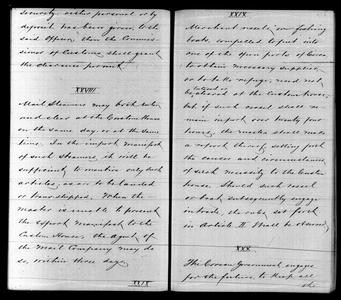 security either personal or by
deposit has been given to the
said Officer, then the Commis-
sioner of Customs shall grant
the clearance permit.
XXVIII
Mail Steamers may both enter
and clear at the Custom House
on the same day or at the same
time. In the import Manifest
of such Steamers, it will be
sufficient to mention only such
articles, as are to be landed
or transhipped. When the
master is unable to present
the Export Manifest to the
Custom House, the Agent of
the Mail Company may do
so, within three days.
XXIX
XXIX
Merchant vessels or fishing
boats compelled to put into
one of the open ports of Corea
to obtain necessary supplies,
or to take refuge, need not
be entered at the Custom house;
but if such vessel shall re-
main in port over twenty four
hours, the master shall make
a report thereof, setting forth
the causes and circumstances
of such necessity to the Custom
house. Should such vessel
or boat subsequently engage
in trade, the rules set forth
in Article II shall be observed.
XXX
The Corean Government engages
for the future to keep all
the